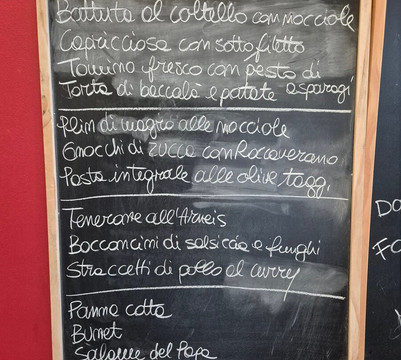 Battuta al coltello con nocciole
Capricciosa con sotto filetto
Tomino fresco con pesto di asparagi
Torta di baccalà e patate
Plin di magro alle nocciole
Gnocchi di zucca con Roccaverano
Pasta integrale alle olive tagg.
Tenerone all'Arneis
Bocconcini di salsiccia e funghi
Straccetti di pollo al curry
Panna cotta
Bunet
Salame del Papa